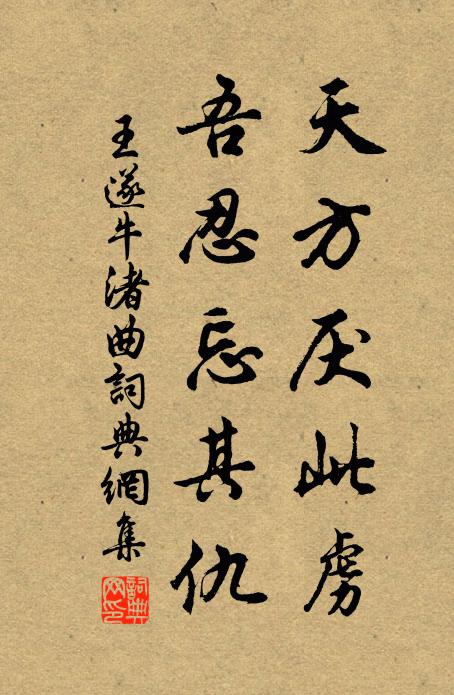 天方厌此虏
吾忍忘其仇
王遂牛渚曲詞典網集
詞典网印